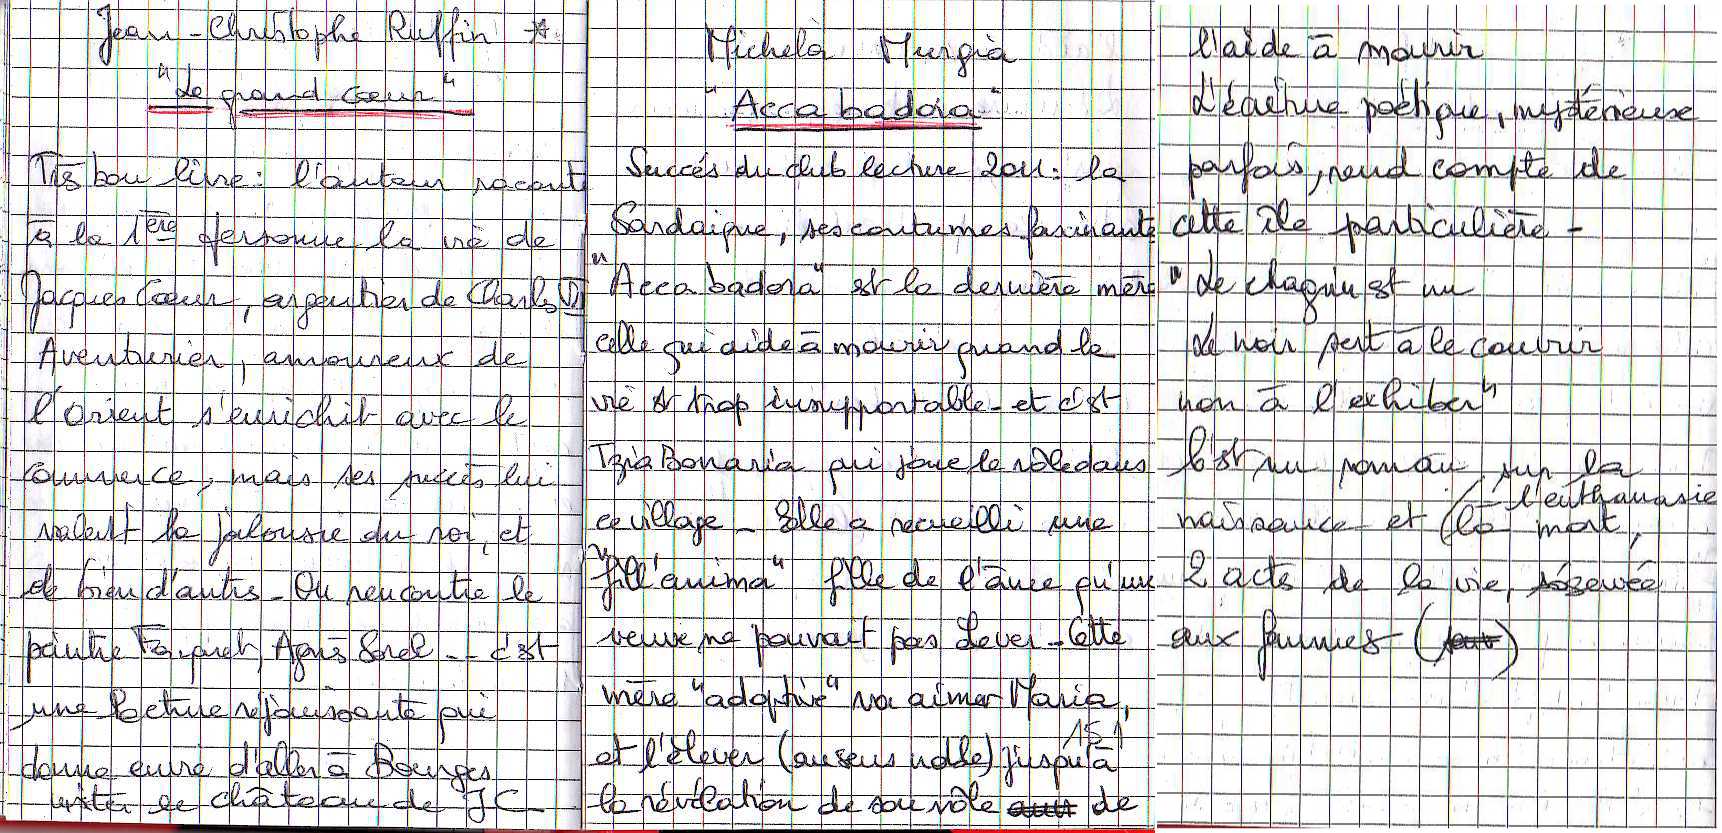 Jean-Christophe Ruffin *
"Le grand Cœur"
Très bon livre : l'auteur raconte
à la 1ère personne la vie de
Jacques Cœur, argentier de Charles VII
Aventurier, amoureux de
l'Orient s'enrichit avec le
commerce, mais ses succès lui
valent la jalousie du roi, et
de bien d'autres - On rencontre le
peintre Fouquet, Agnès Sorel -- c'est
une lecture réjouissante qui
donne envie d'aller à Bourges
visiter le château de JC -
Michela Murgia
"Acca badora"
Succès du club lecture 2011 : la
Sardaigne, ses coutumes fascinante
"Acca badora" est la dernière mère
celle qui aide à mourir quand la
vie est trop insupportable - et c'est
Tzia Bonaria qui joue le rôle dans
ce village - Elle a recueilli une
"fill'anima" fille de l'âme qu'une
veuve ne pouvait pas élever - Cette
mère "adoptive" va aimer Maria,
et l'élever (au sens noble) jusqu'à
15 1
la révélation de son rôle de
l'aide à mourir
L'écriture poétique, mystérieuse
parfois, rend compte de
cette île particulière -
"Le chagrin est nu
Le noir sert à le couvrir
non à l'exhiber"
C'est un roman sur la
l'euthanasie
naissance et la mort,
2 actes de la vie, réservée
aux femmes (